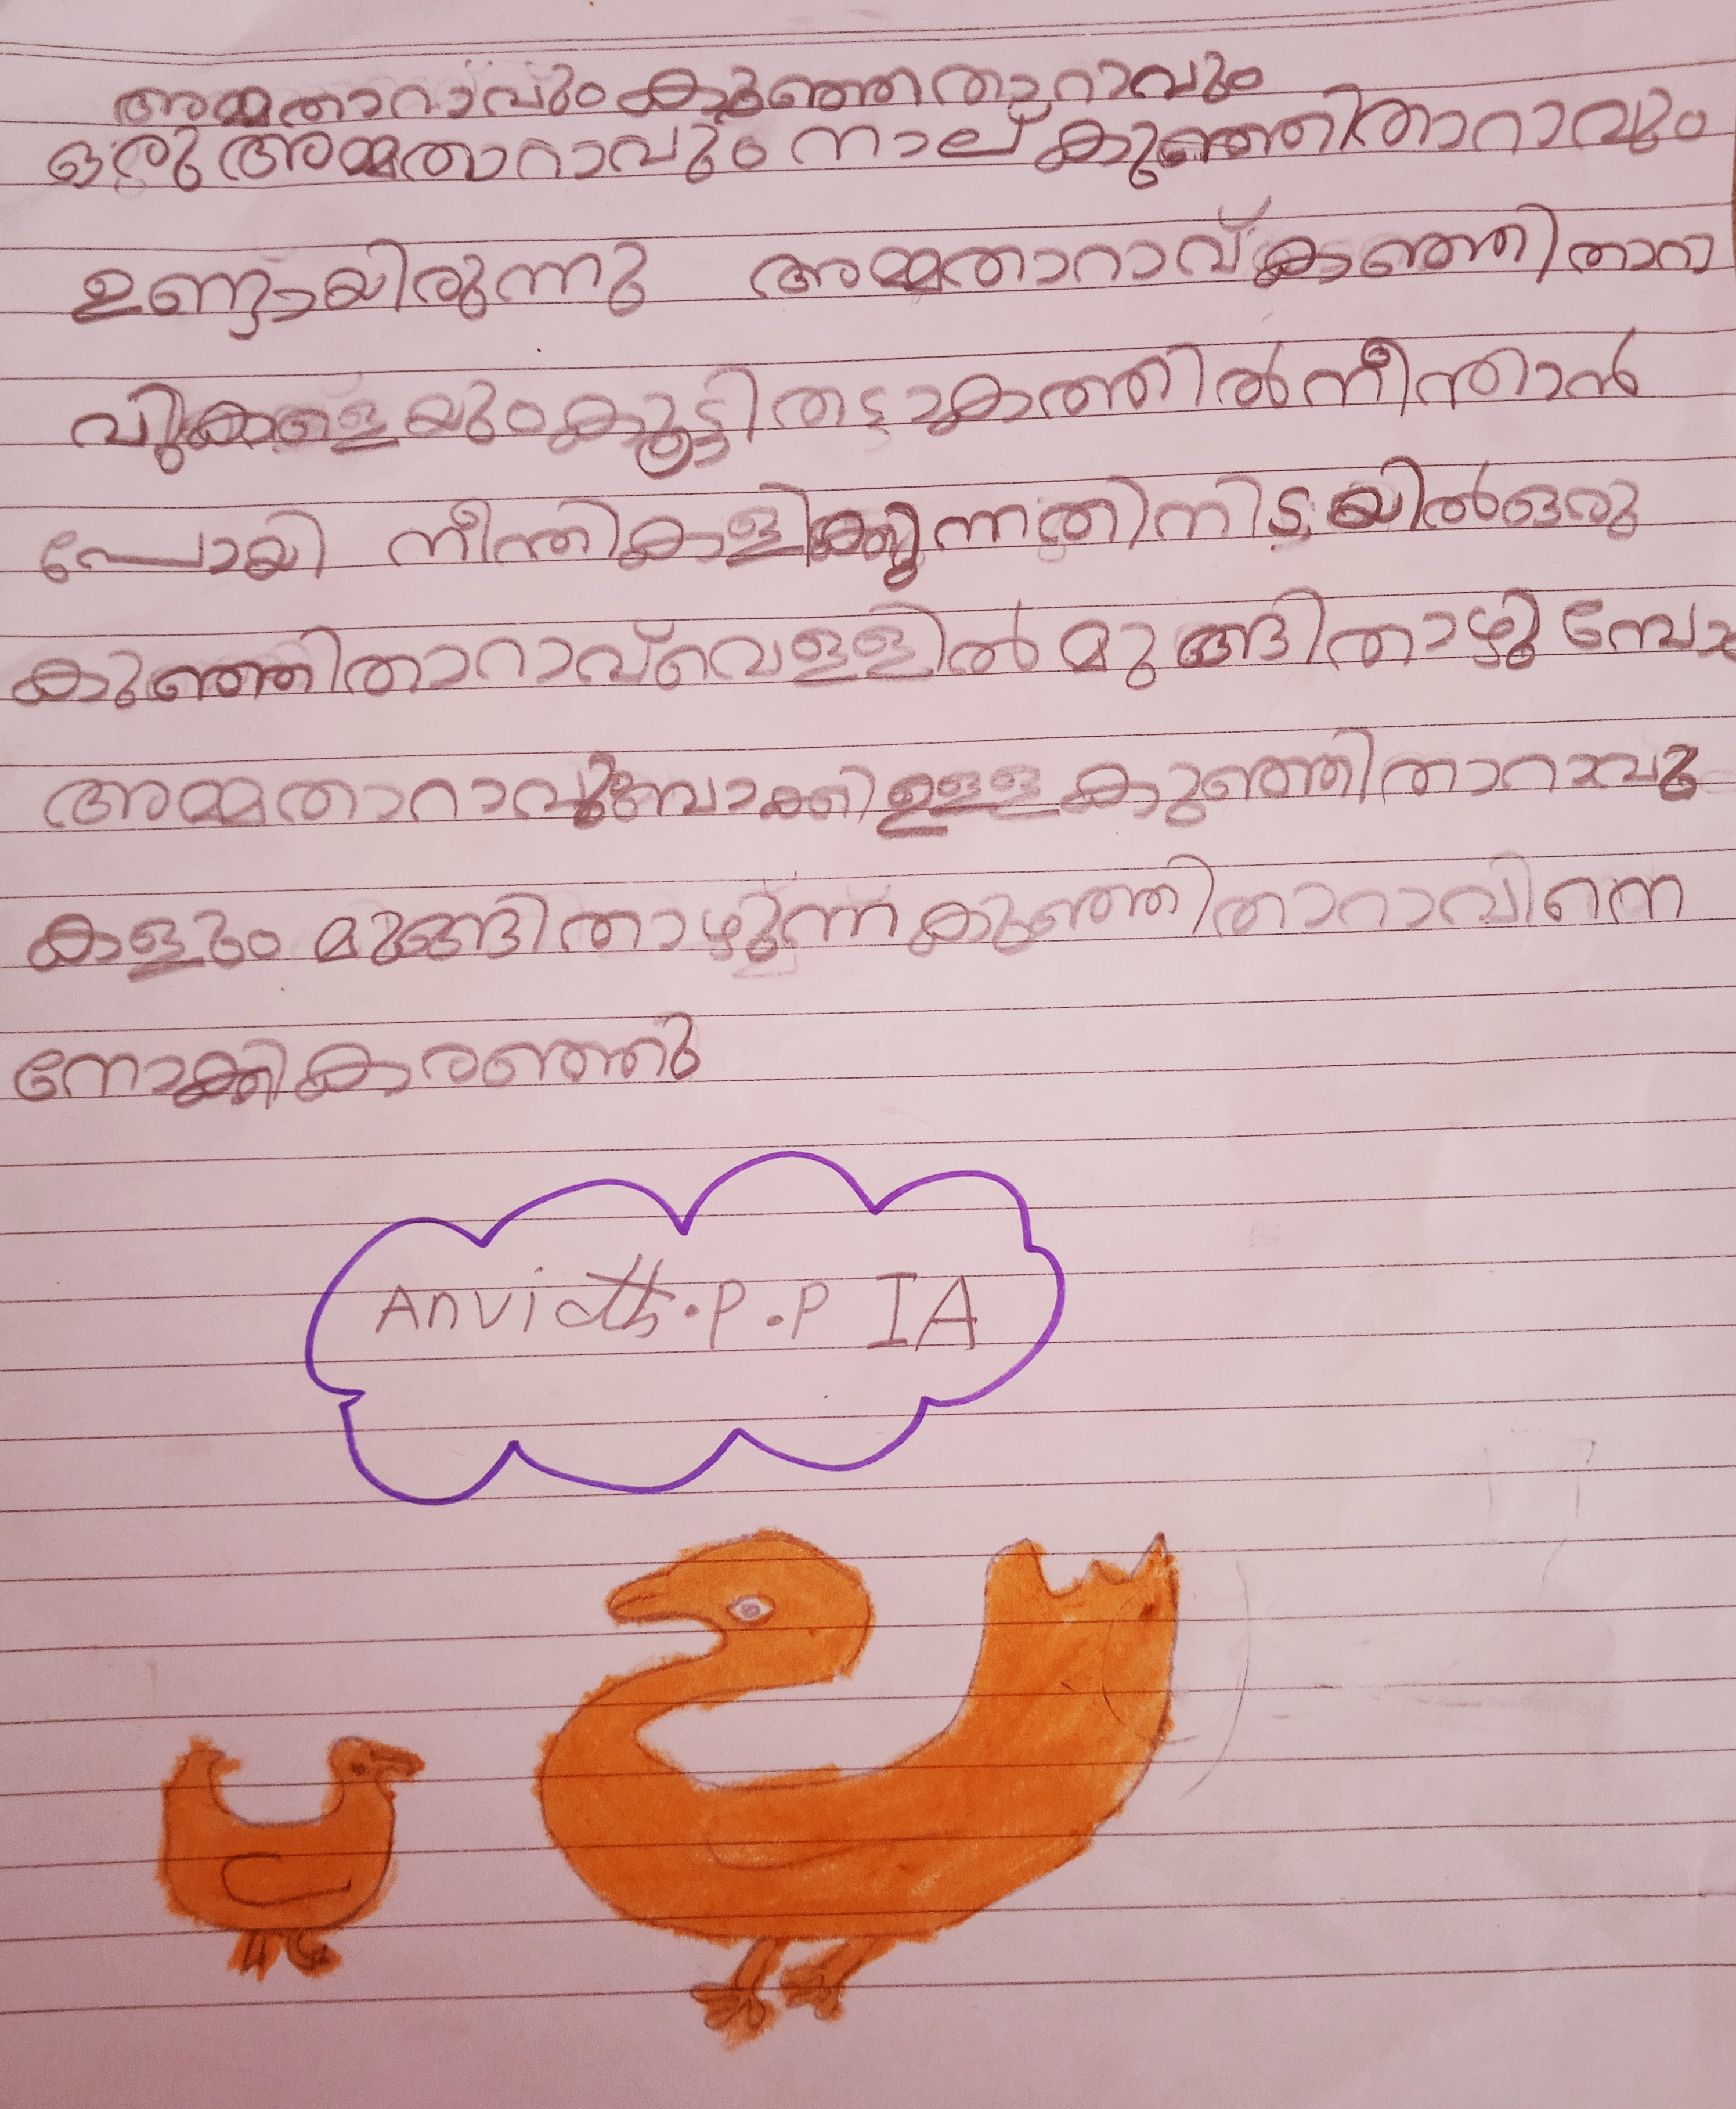 അമ്മതാറാവും കുഞ്ഞുതാറാവും
ഒരു അമ്മതാറാവും നാല് കുഞ്ഞിതാറാവും
ഉണ്ടായിരുന്നു അമ്മതാറാവ് കുഞ്ഞിതാറാ
വുകളെയുംകൂട്ടി തടാകത്തിൽ നീന്താൻ
പോയി നീന്തികളിക്കുന്നതിനിടയിൽ ഒരു
കുഞ്ഞിതാറാവ് വെള്ളിൽ മുങ്ങിതാഴു മ്പോൾ
അമ്മതാറാവുംബാക്കി ഉള്ള കുഞ്ഞിതാറാവു
കളും മുങ്ങിതാഴുന്ന കുഞ്ഞിതാറാവിനെ
നോക്കികരഞ്ഞു
Anvidth.P.P IA